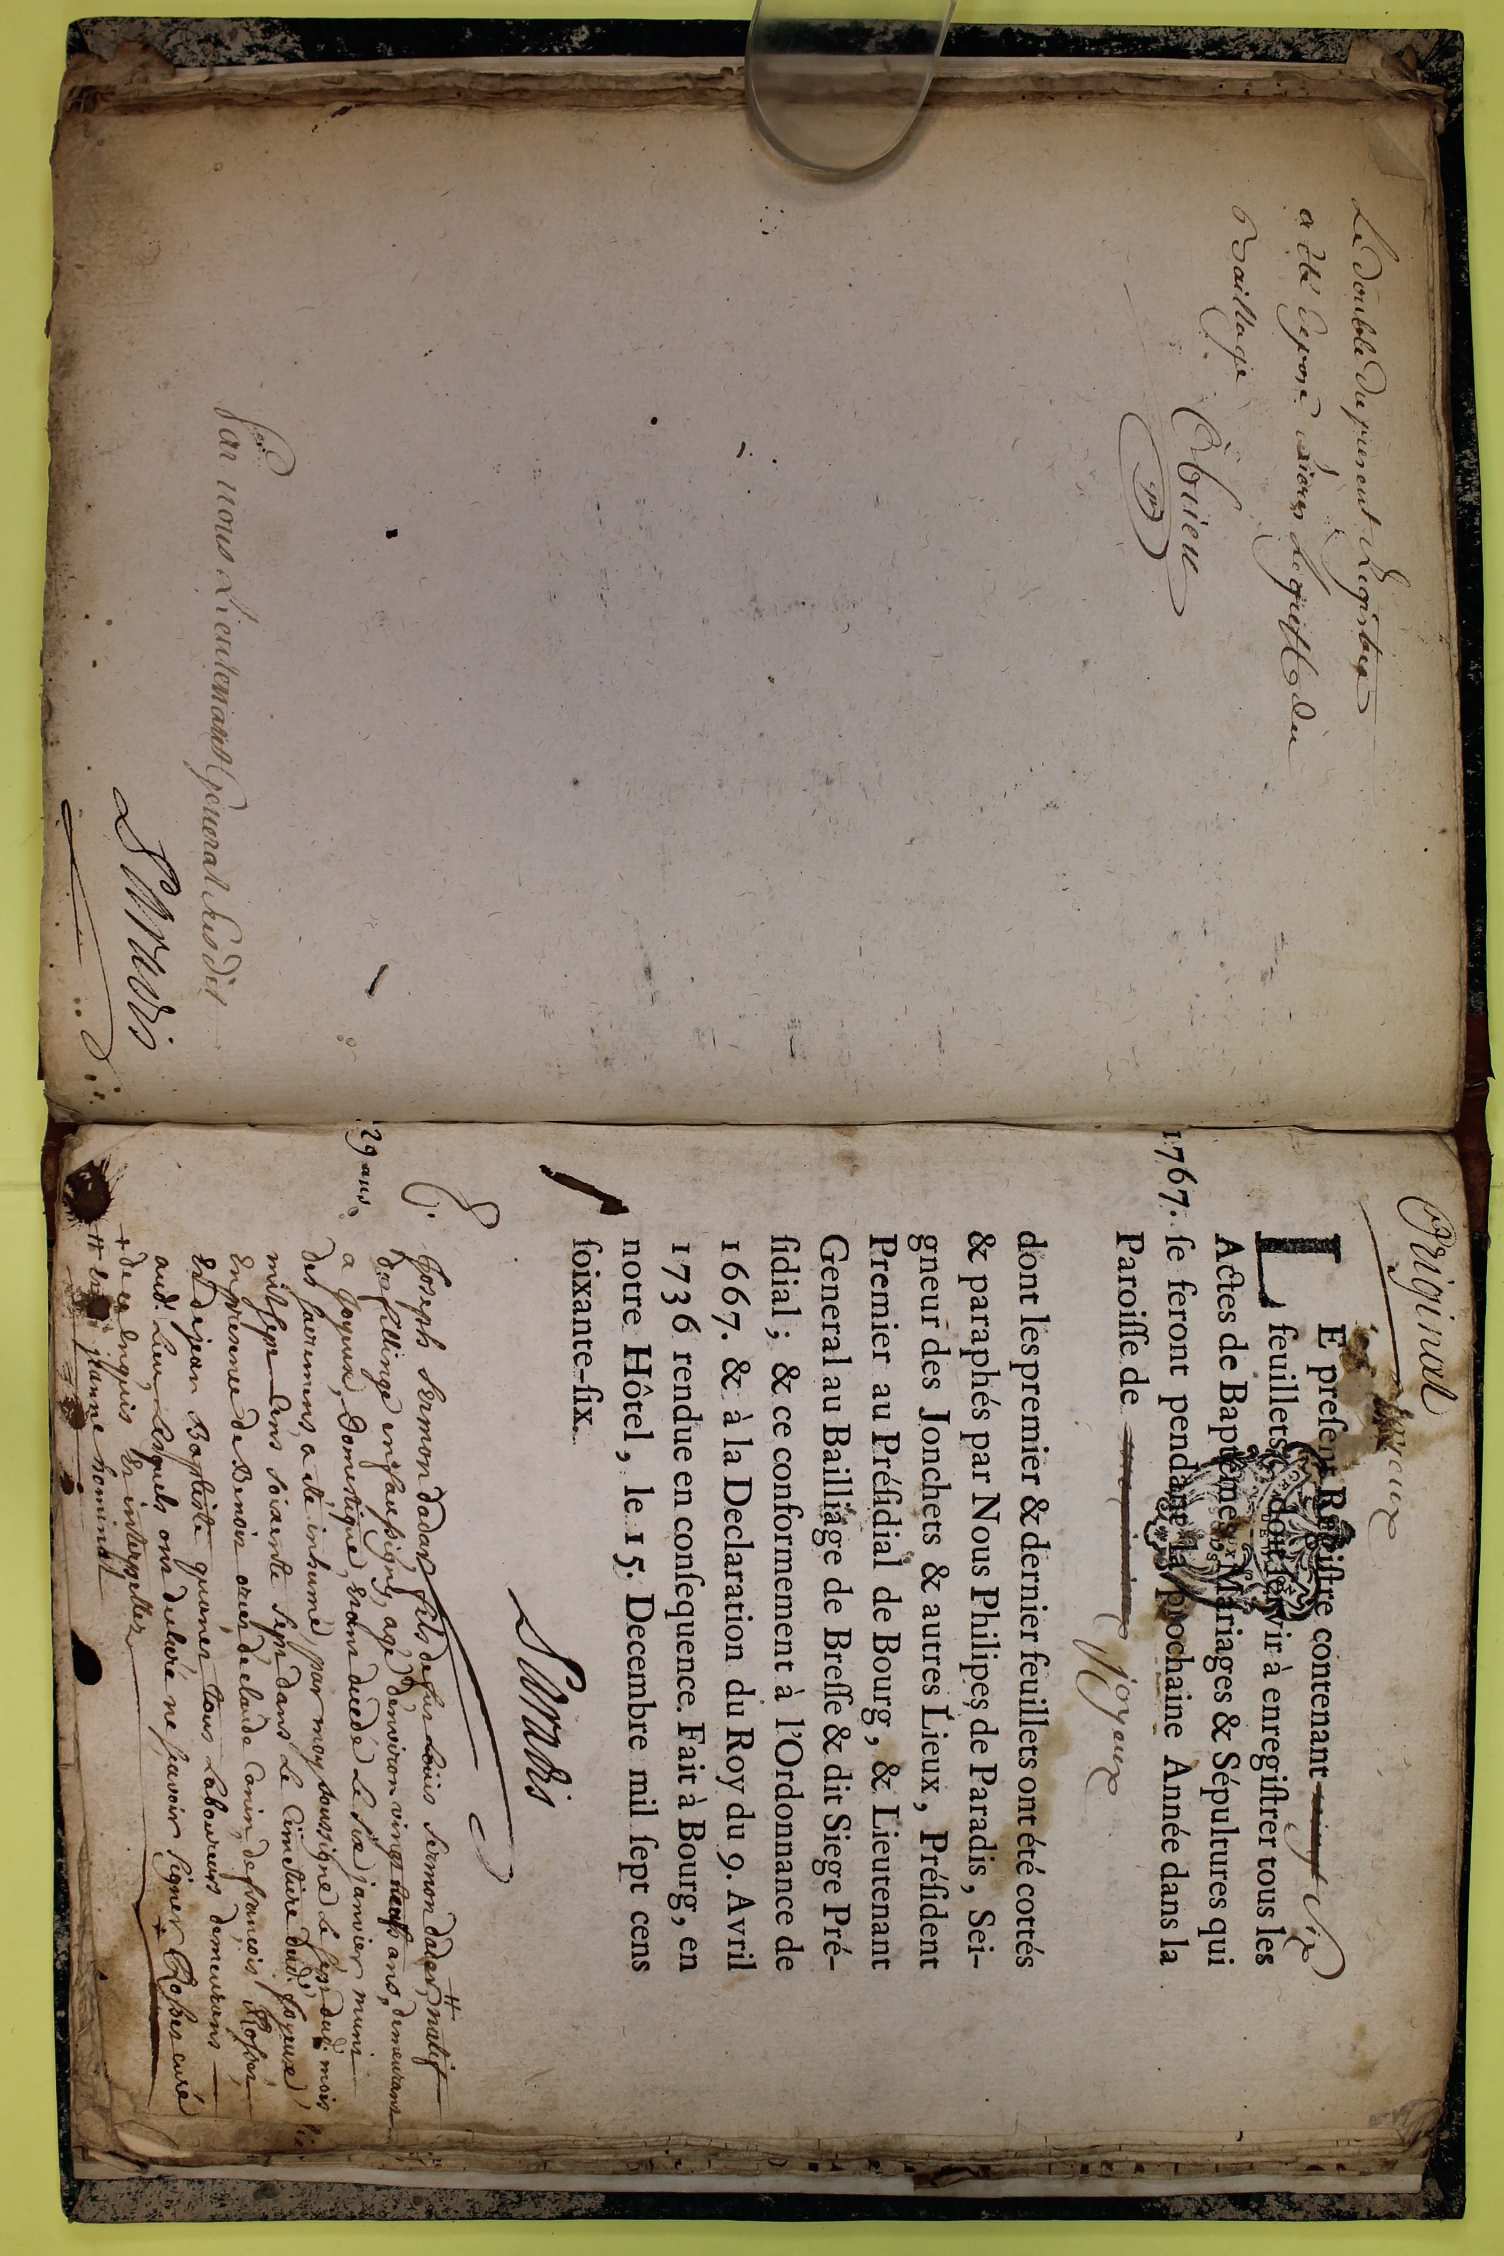 Le double du present Registre
a eté deposé rieres le greffe du
Bailliage
Par nous Lieutenant General susdit
Paradis
Original
joyeux
LE preſent Regiſtre contenant vingt six
feuillets, doit ſervir à enregiſtrer tous les
Actes de Baptêmes, Mariages & Sépultures qui
1767. ſe feront pendant la prochaine Année dans la
Paroiſſe de joyeux
dont les premier & dernier feuillets ont été cottés
& paraphés par Nous Philipes de Paradis, Sei-
gneur des Jonchets & autres Lieux, Préſident
Premier au Préſidial de Bourg, & Lieutenant
General au Bailliage de Breſſe & dit Siege Pré-
ſidial; & ce conformement à l'Ordonnance de
1667. & à la Declaration du Roy du 9. Avril
1736 rendue en conſequence. Fait à Bourg, en
notre Hôtel, le 15. Decembre mil ſept cens
ſoixante-ſix.
Paradis
29 ans
Joseph Sermondadar fils de feu Loüis Sermondadar, # natif
de fillinge en faussigny, agé d'environ vingt neuf ans, demeurant
a Joyeux, Domestique, etant decedé Le six janvier muni
des sacremens, a eté inhumé, par moy soussigné Le sept dud. mois
mil sept Cens soixante sept dans Le Cimetiere dud. Joyeux,
en presence de Benoit de claude Conin, de françois Rosset,
et de jean Baptiste tous Laboureurs demeurans
aud. Lieu, Lesquels ont declaré ne sçavoir signer + Rosset curé
+ de ce enquis et interpellez
# et jeanne nominat